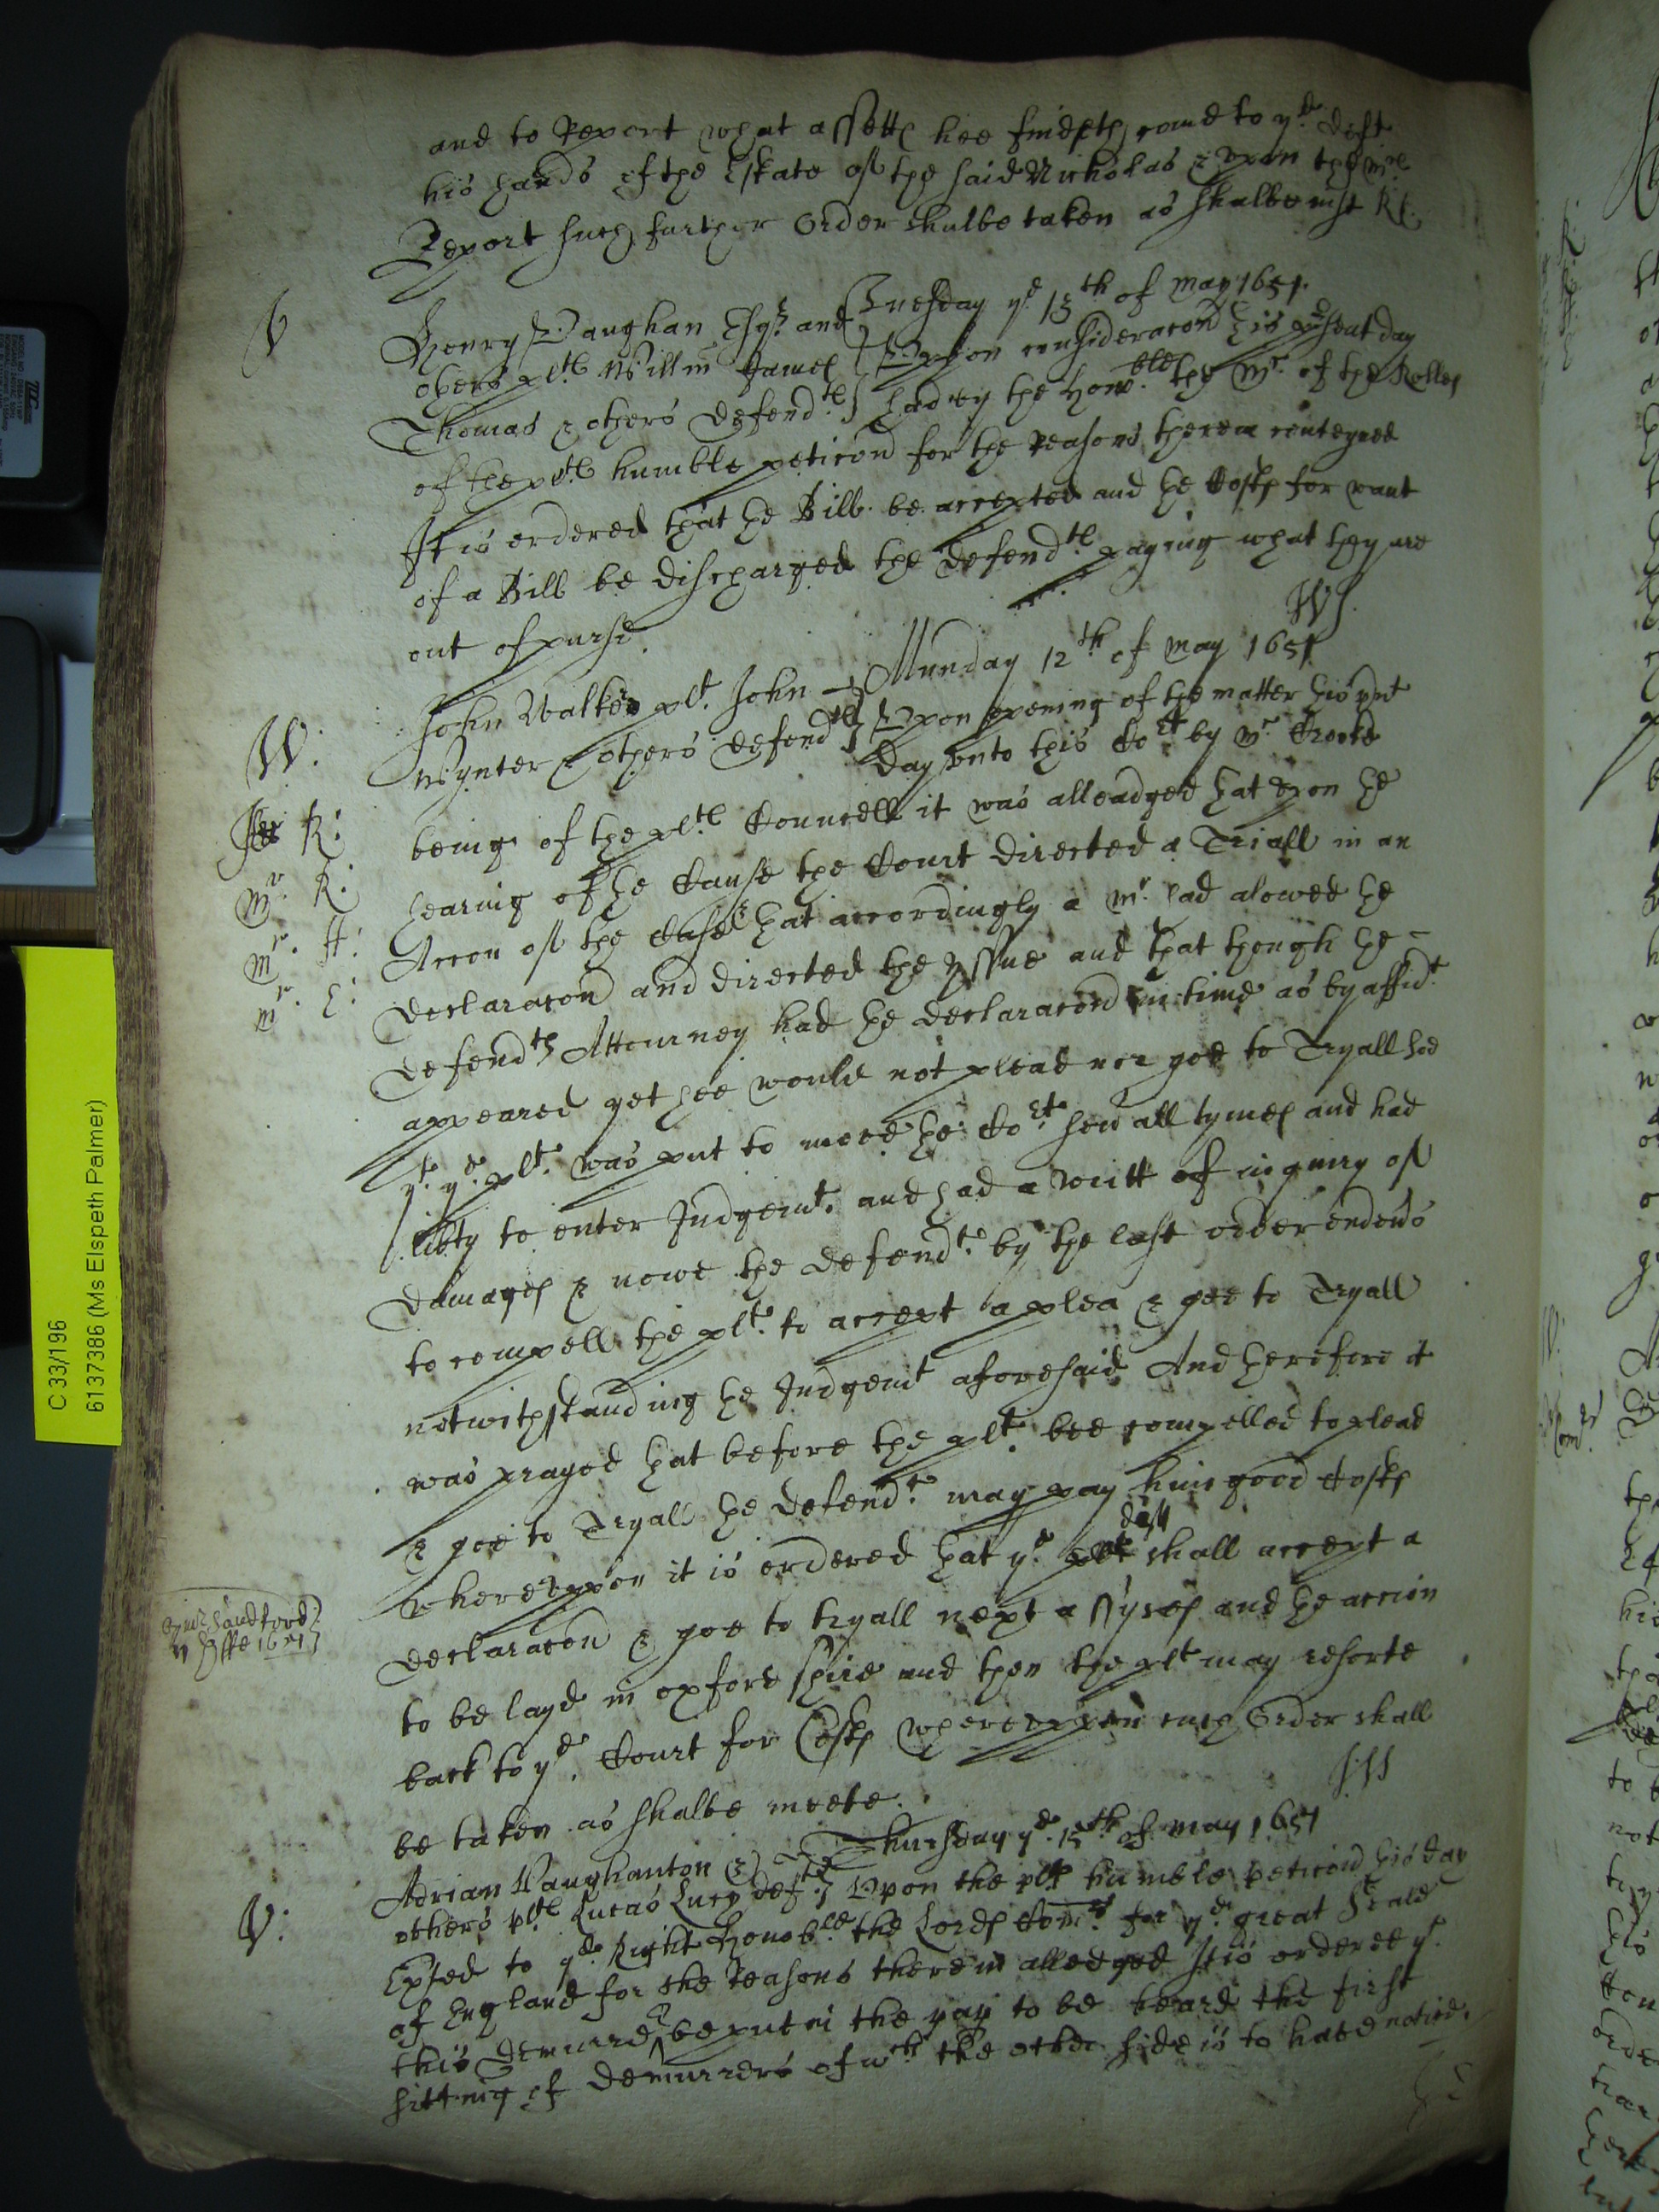 and to Report what assetts hee findeth come to ye deft
his hands of the Estate of the said Nicholas & upon the mrs
Report such further Order shalbe taken as shalbe iust
V
Tuesday ye 13th of May 1651.
Henry Vaughan Esqr and
others plts Willm James
Thomas & others defendts
Vpon consideracon this present day
had by the Honoble the Mr. of the Rolles
of the plts humble peticon for the Reasons therein conteyned
It is ordered that the Bill be accepted and the Costs for want
of a Bill be discharged the defendts paying what they are
out of purse.
W:
Munday 12th of May 1651
John Walker plt. John
Wynter & others defendts
Vpon opening of the matter this pnt
day vnto this Cort by Mr Crooke
R:
Mr. R:
Mr. H:
Mr. E:
being of the plts Councell it was alleadged that vpon the
hearing of the Cause the Court directed a Triall in an
Accon of the Case that accordingly a Mr. had alowed the
declaracon and directed the yssue and that though the
defendts Attourney had the declaracon in time as by affidt
appeared yet hee would not plead nor goe to Tryall soe
yt. ye. plt. was put to move the Cort. seuall tymes and had
libty to enter Judgemt. and had a writt of inquiry of
damages & nowe the defendt. by the last order endevors
to compell the plt. to accept a plea & goe to Tryall
notwithstanding the Judgemt aforesaid And therefore it
was prayed that before the plt. bee compelled to plead
& goe to Tryall the defendt. may pay him good Costs
whereuppon it is ordered that ye. deft shall accept a
declaracon & goe to tryall next assyses and the accion
to be layd in oxford shire and then the plt may resorte
back to ye. Court for Costs whereuppon such Order shall
be taken as shalbe meete.
V:
Thursday ye. 15th of May 1651
Adrian Vaughanton &
others plts Lucas Lucy deft
Upon the plts humble peticon this day
Exhted to ye Right Honoble the Lords Comrs for ye. great Seale
of England for the Reasons therein alledged It is ordered yt
this demurrer be put in the pap to be heard the first
sitting of demurrers of wch the other side is to have notice.
C 33/196
6137386 (Ms Elspeth Palmer)